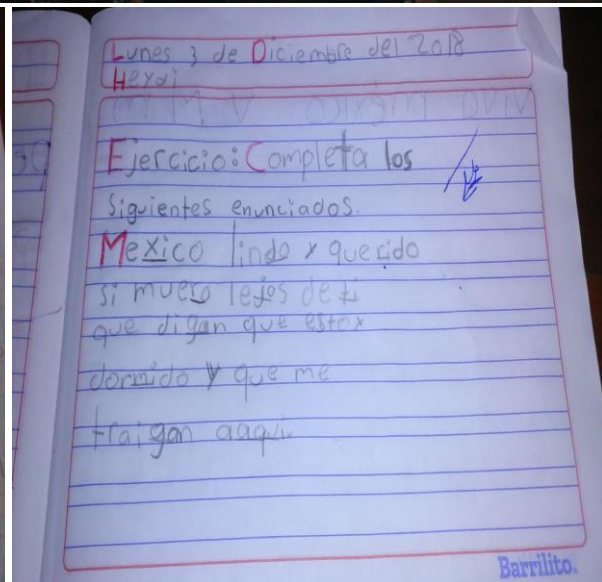 Lunes 3 de Diciembre del 2018
Heydi
Ejercicio: Completa los
siguientes enunciados.
Mexico lindo y querido
si muero lejos de ti
que digan que estoy
dormido y que me
traigan aaqui.
Barrilito.